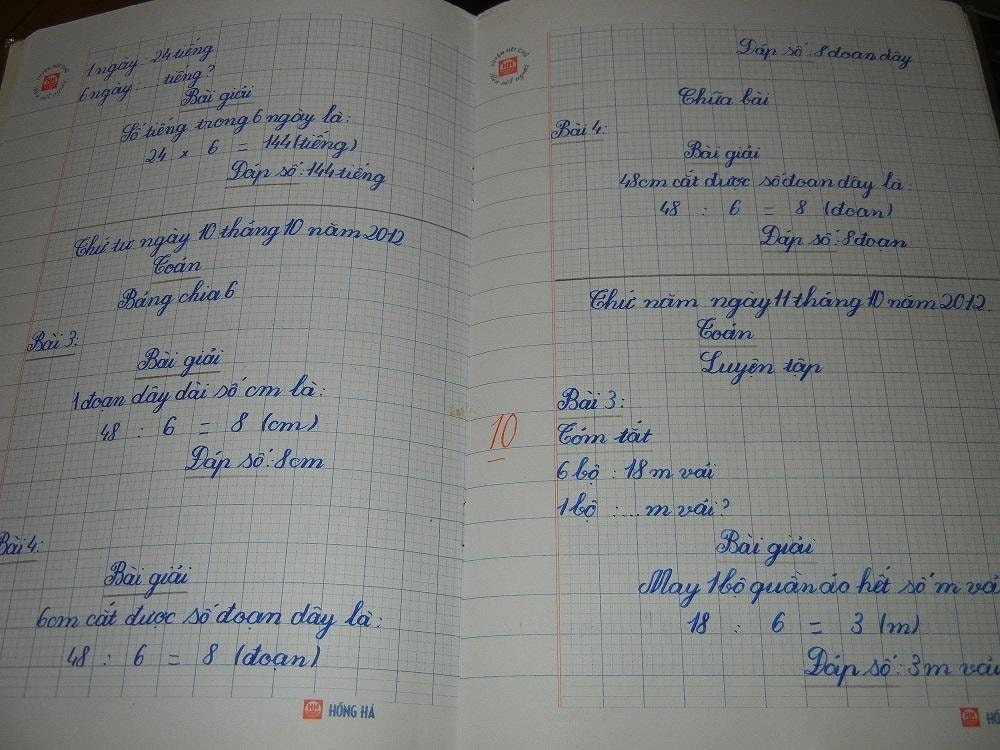 1 ngày : 24 tiếng
6 ngày : ... tiếng ?
Bài giải
Số tiếng trong 6 ngày là:
24 x 6 = 144 (tiếng)
Đáp số : 144 tiếng
Thứ tư ngày 10 tháng 10 năm 2012
Toán
Bảng chia 6
Bài 3:
Bài giải
1 đoạn dây dài số cm là:
48 : 6 = 8 (cm)
Đáp số : 8cm
Bài 4:
Bài giải
6cm cắt được số đoạn dây là:
48 : 6 = 8 (đoạn)
HH HỒNG HÀ
LUYỆN NÉT CHỮ
HH
Rèn nết người
Đáp số : 8 đoạn dây
Chữa bài
Bài 4:
Bài giải
48cm cắt được số đoạn dây là:
48 : 6 = 8 (đoạn)
Đáp số : 8 đoạn
Thứ năm ngày 11 tháng 10 năm 2012
Toán
Luyện tập
10
Bài 3:
Tóm tắt
6 bộ : 18 m vải
1 bộ : ... m vải ?
Bài giải
May 1 bộ quần áo hết số m vả
18 : 6 = 3 (m)
Đáp số : 3 m vải
HH HỒ